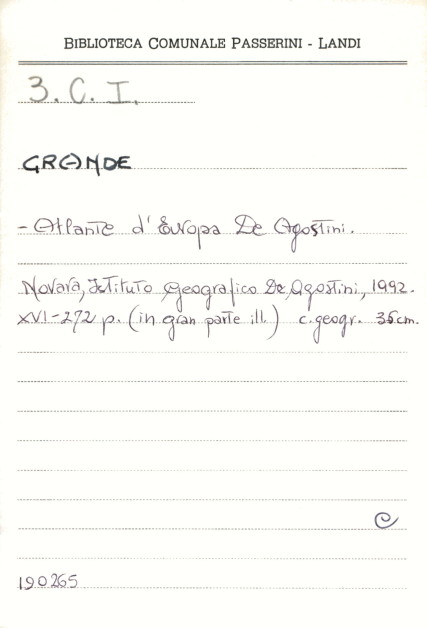 BIBLIOTECA COMUNALE PASSERINI - LANDI
3. C. I.
GRANDE
- Atlante d'Europa De Agostini.
Novara, Istituto Geografico De Agostini, 1992.
XVI-272 p. (in gran parte ill.) c.geogr. 36cm.
C
190265